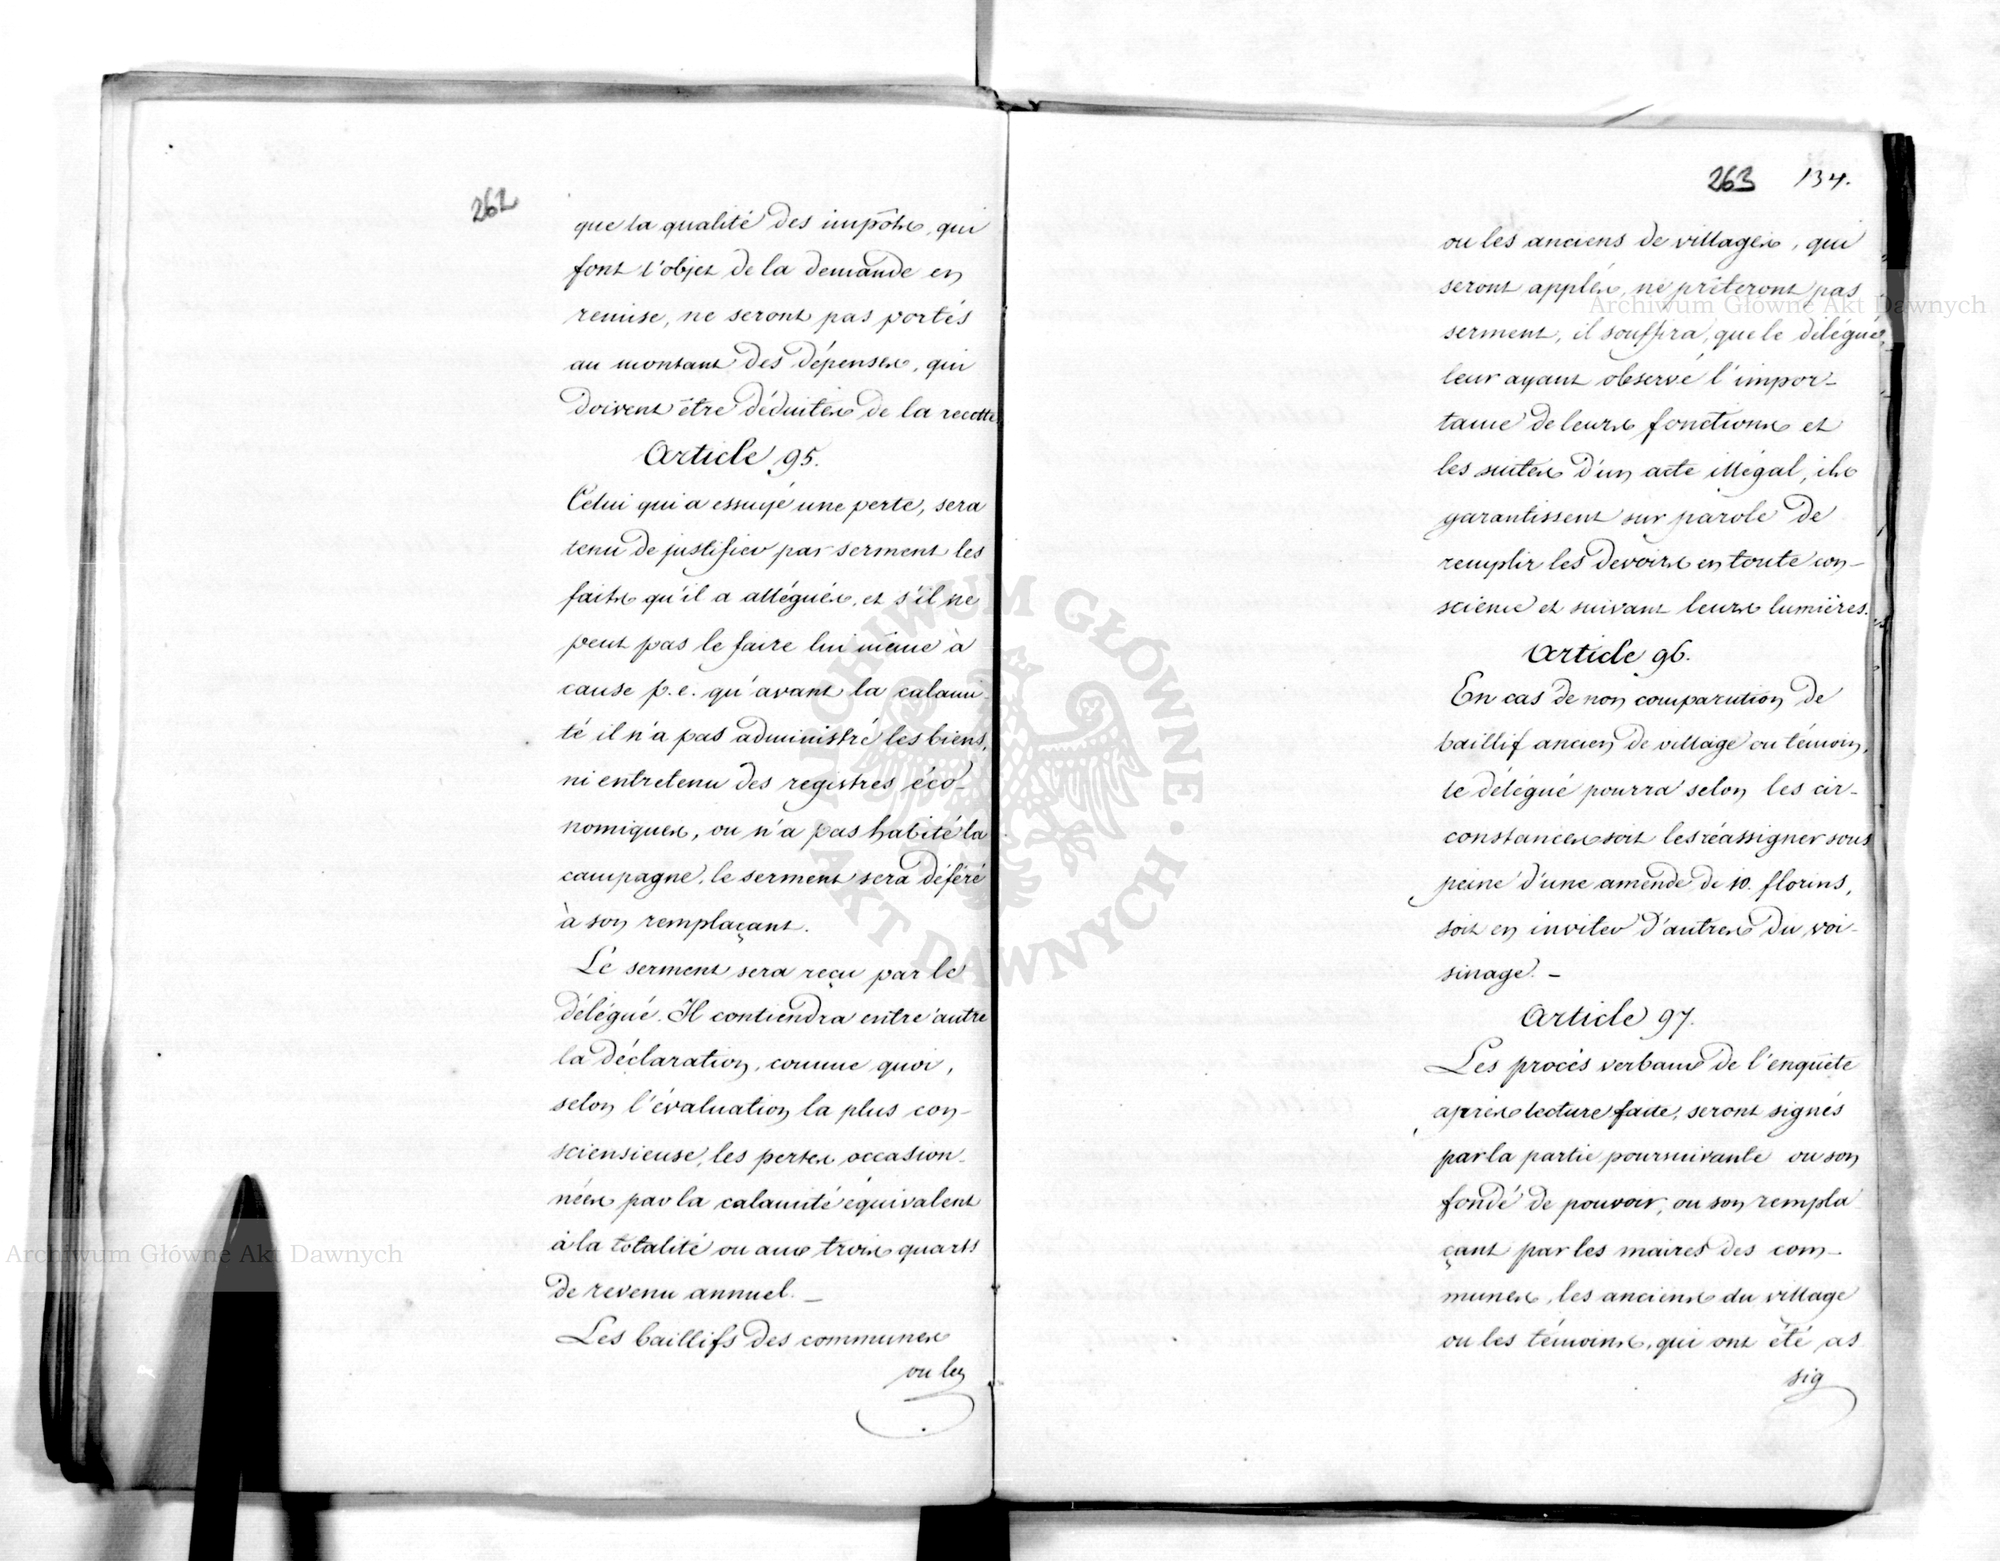 262
que la qualité des impôts, qui
font l'objet de la demande en
remise, ne seront pas portés
au montant des dépenses, qui
doivent être déduites de la recette.
Article 95.
Celui qui a essuyé une perte, sera
tenu de justifier par serment les
faits qu'il a allégués, et s'il ne
peut pas le faire lui même à
cause p. e. qu'avant la calami-
té il n'a pas administré les biens,
ni entretenu des registres éco-
nomiques, ou n'a pas habité la
campagne, le serment sera déféré
à son remplaçant.
Le serment sera reçu par le
délégué. Il contiendra entre autre
la déclaration, comme quoi,
selon l'évaluation la plus con-
sciensieuse, les pertes occasion-
nées par la calamité équivalent
à la totalité ou aux trois quarts
de revenu annuel. _
Les baillifs des communes
ou les
263 134.
ou les anciens de villages, qui
seront applés, ne prêteront pas
serment, il souffira, que le délégué,
leur ayant observé l'impor-
tance de leurs fonctions et
les suites d'un acte illégal, ils
garantissent sur parole de
remplir les devoirs en toute con-
science et suivant leurs lumières.
Article 96.
En cas de non comparution de
baillif ancien de village ou témoin,
le délégué pourra selon les cir-
constances soit les réassigner sous
peine d'une amende de 10. florins,
soit en inviter d'autres du voi-
sinage. _
Article 97.
Les procès verbaux de l'enquête
après lecture faite, seront signés
par la partie poursuivante ou son
fondé de pouvoir, ou son rempla
çant par les maires des com-
munes, les anciens du village
ou les témoins, qui ont été as
sig
Archiwum Główne Akt Dawnych
Archiwum Główne Akt Dawnych
ARCHIWUM GŁÓWNE AKT DAWNYCH